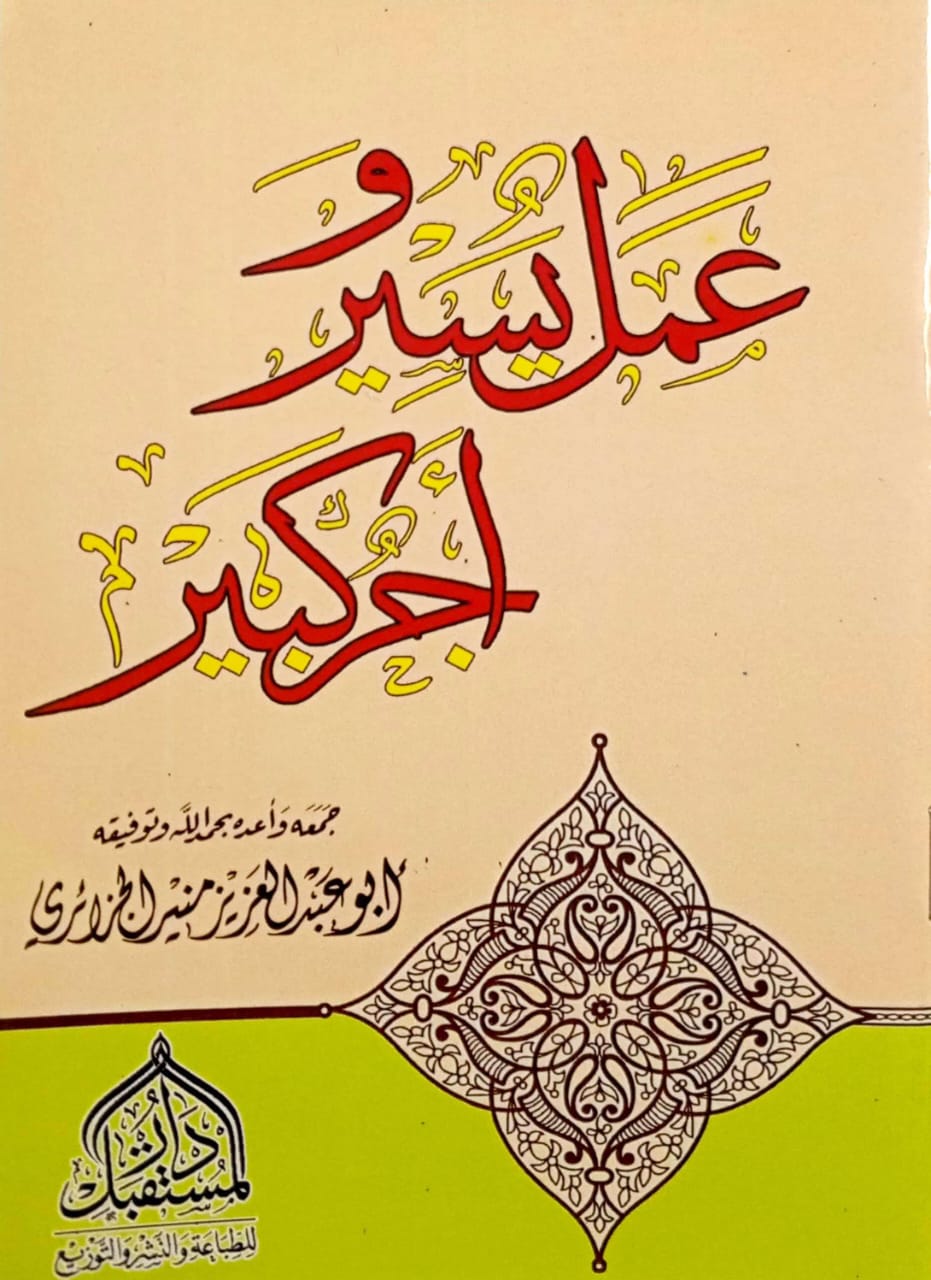 عَمَل يَسِير وَ
أَجْر كَبِير
جَمَعَه وَأعده بحمد اللَّه وتوفيقه
أبو عَبْد العَزِيْز منير الجزائري
دَارُ المُسْتَقبَل
لِلطِّبَاعَةِ وَالنَّشْرِ وَالتَّوْزِيْعِ